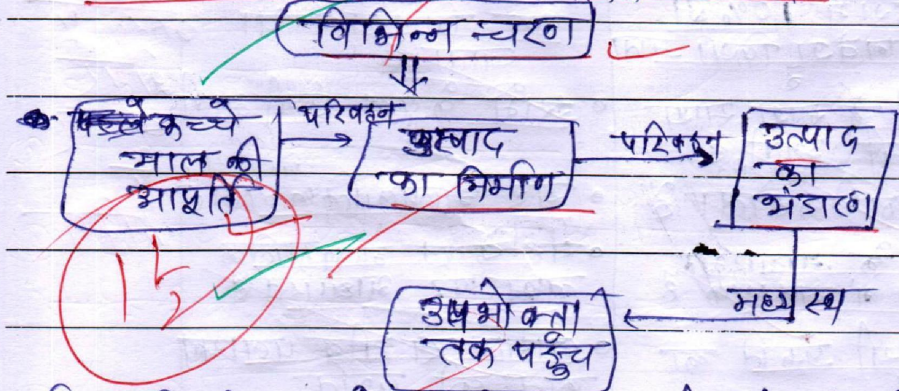 विभिन्न चरण
कच्चे
माल की
आपूर्ति
परिवहन
उत्पाद
का निर्माण
परिवहन
उत्पाद
का
भंडारण
मध्यस्थ
उपभोक्ता
तक पहुँच